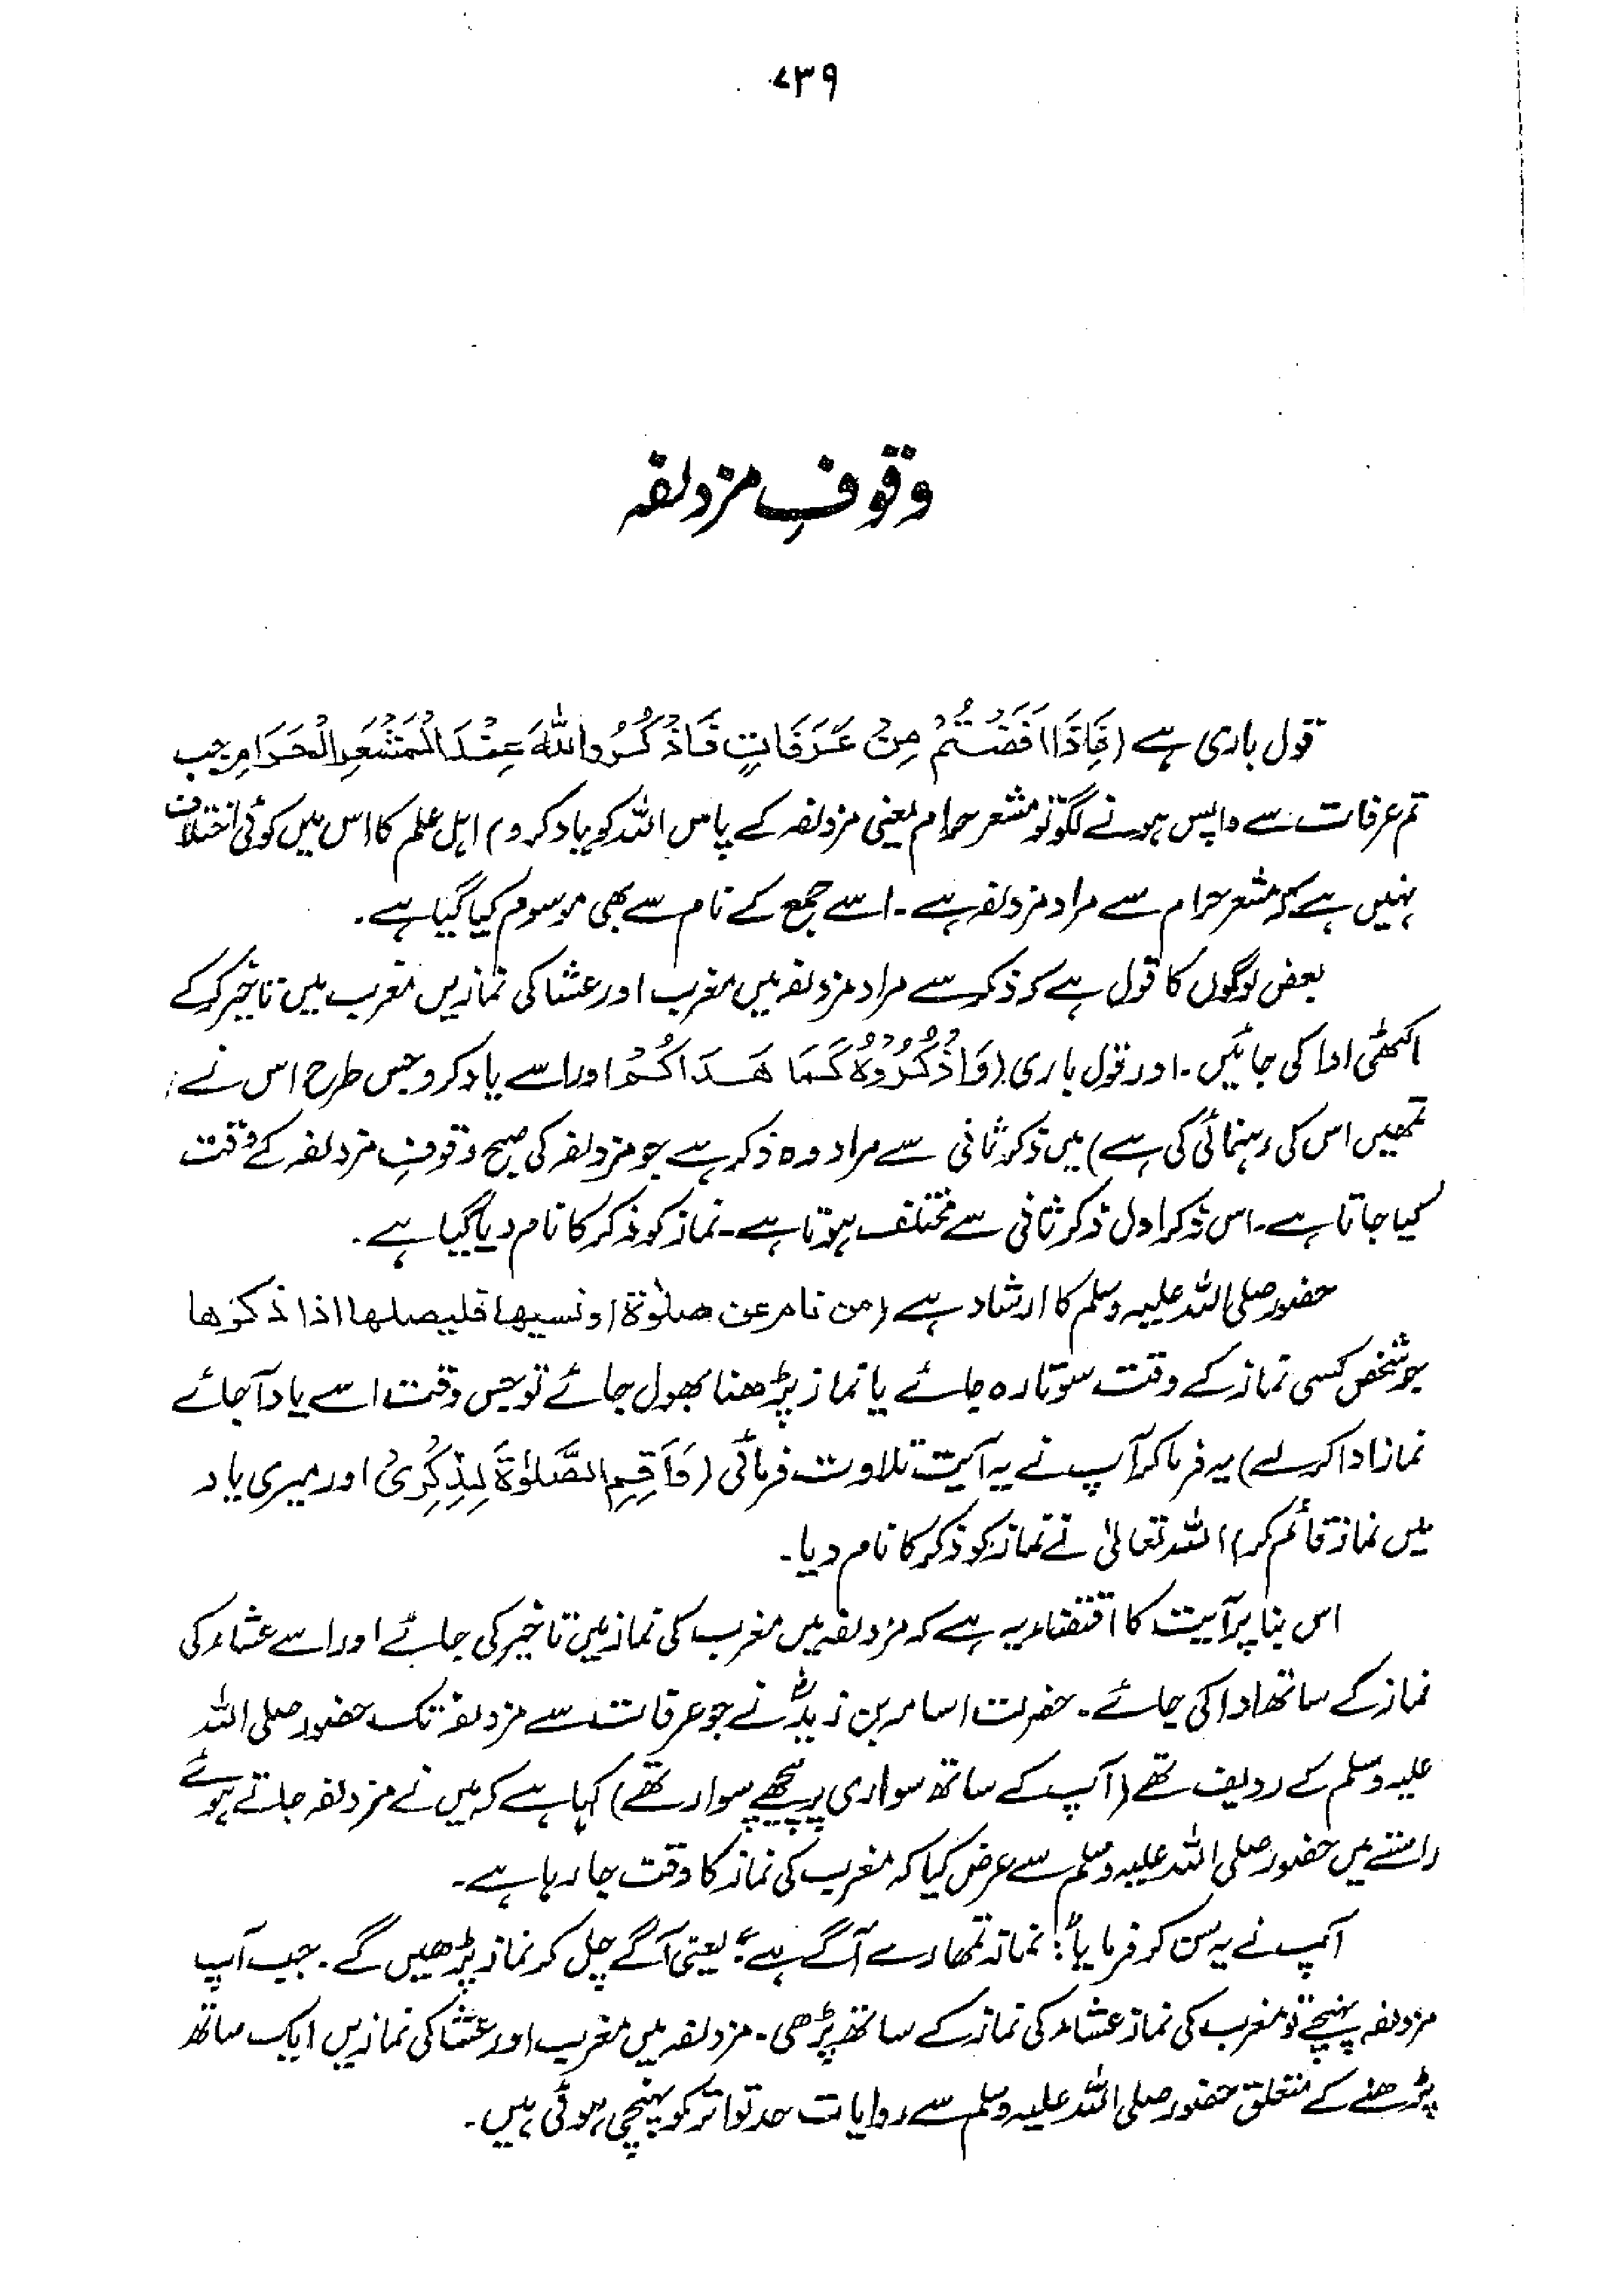 ۷۳۹
وقوفِ مزدلفہ
قول باری ہے (فَاِذَا اَفَضْتُمْ مِنْ عَرَفَاتٍ فَاذْكُرُوا اللهَ عِنْدَ الْمَشْعَرِ الْحَرَامِ جب
تم عرفات سے واپس ہونے لگو تو مشعر حرام یعنی مزدلفہ کے پاس اللہ کو یاد کرو) اہل علم کا اس میں کوئی اختلاف
نہیں ہے کہ مشعر حرام سے مراد مزدلفہ ہے۔ اسے جمع کے نام سے بھی موسوم کیا گیا ہے۔
بعض لوگوں کا قول ہے کہ ذکر سے مراد مزدلفہ میں مغرب اور عشا کی نمازیں مغرب میں تاخیر کرکے
اکٹھی ادا کی جائیں۔ اور قول باری (وَاذْكُرُوْهُ كَمَا هَدَاكُمْ اور اسے یاد کرو جس طرح اس نے
تمھیں اس کی رہنمائی کی ہے) میں ذکر ثانی سے مراد وہ ذکر ہے جو مزدلفہ کی صبح وقوفِ مزدلفہ کے وقت
کیا جاتا ہے۔ اس ذکر اول ذکر ثانی سے مختلف ہوتا ہے۔ نماز کو ذکر کا نام دیا گیا ہے۔
حضور صلی اللہ علیہ وسلم کا ارشاد ہے (من نام عن صلوٰة او نسیها فلیصلها اذا ذکرها
جو شخص کسی نماز کے وقت سوتا رہ جائے یا نماز پڑھنا بھول جائے تو جس وقت اسے یاد آجائے
نماز ادا کرلے) یہ فرما کر آپ نے یہ آیت تلاوت فرمائی (وَاَقِمِ الصَّلوٰةَ لِذِكْرِیْ اور میری یاد
میں نماز قائم کر) اللہ تعالیٰ نے نماز کو ذکر کا نام دیا۔
اس بنا پر آیت کا اقتضاء یہ ہے کہ مزدلفہ میں مغرب کی نماز میں تاخیر کی جائے اور اسے عشاء کی
نماز کے ساتھ ادا کی جائے۔ حضرت اسامہ بن زیدؓ نے جو عرفات سے مزدلفہ تک حضور صلی اللہ
علیہ وسلم کے ردیف تھے (آپ کے ساتھ سواری پر پیچھے سوار تھے) کہا ہے کہ میں نے مزدلفہ جاتے ہوئے
راستے میں حضور صلی اللہ علیہ وسلم سے عرض کیا کہ مغرب کی نماز کا وقت جا رہا ہے۔
آپ نے یہ سن کر فرمایا: "نماز تمھارے آگے ہے" یعنی آگے چل کر نماز پڑھیں گے۔ جب آپ
مزدلفہ پہنچے تو مغرب کی نماز عشاء کی نماز کے ساتھ پڑھی۔ مزدلفہ میں مغرب اور عشا کی نمازیں ایک ساتھ
پڑھنے کے متعلق حضور صلی اللہ علیہ وسلم سے روایات حد تواتر کو پہنچی ہوئی ہیں۔